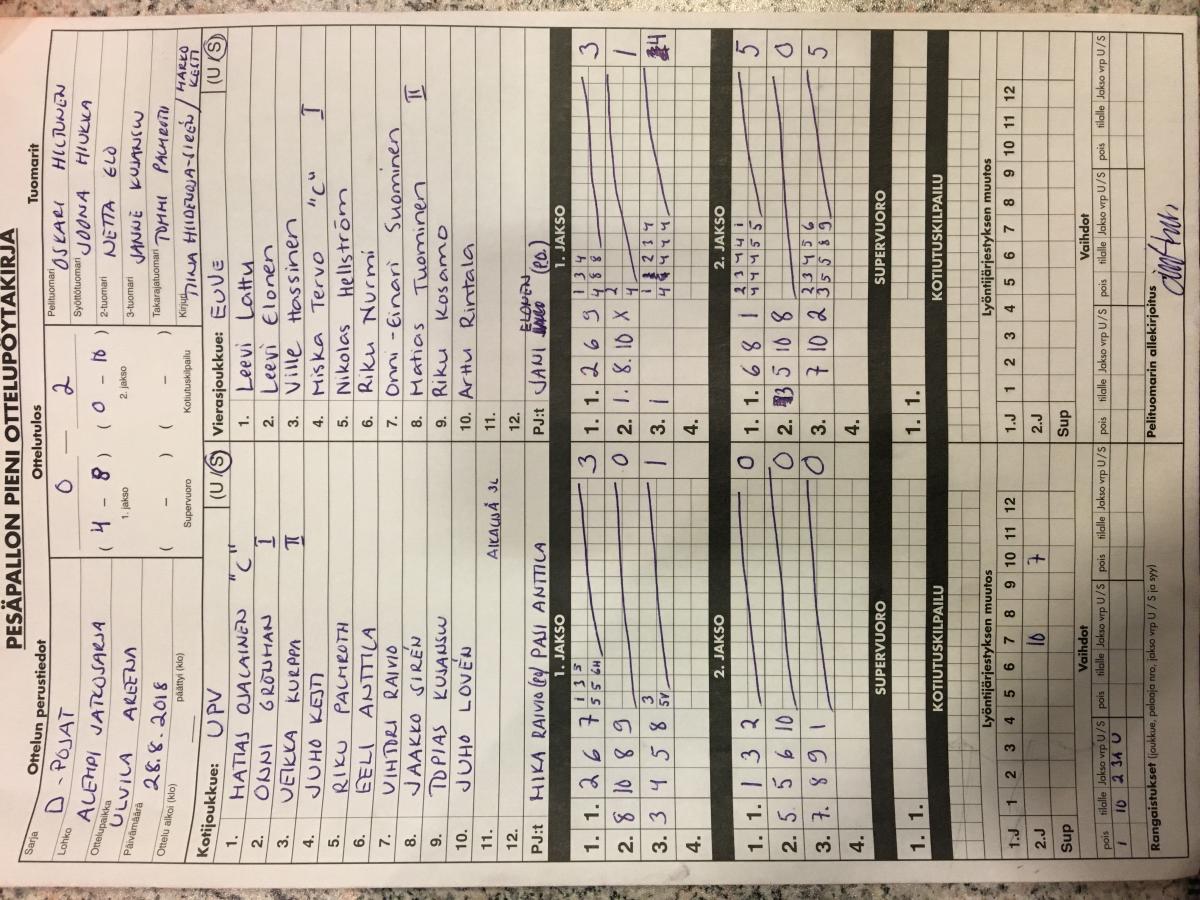 PESÄPALLON PIENI OTTELUPÖYTÄKIRJA
Ottelun perustiedot
Ottelutulos
Tuomarit
Sarja D-POJAT
Lohko ALEMPI JATKOSARJA
Ottelupaikka ULVILA AREENA
Päivämäärä 28.8.2018
Ottelu alkoi (klo) päättyi (klo)
0 — 2
( 4 – 8 ) ( 0 – 10 )
1. jakso 2. jakso
( – ) ( – )
Supervuoro Kotiutuskilpailu
Pelituomari OSKARI HILTUNEN
Syöttötuomari JOONA HIUKKA
2-tuomari NETTA ELO
3-tuomari JANNE KUJANSUU
Takarajatuomari TOMMI PALMROTH
Kirjuri TIINA HIIDENOJA-SIRÉN / MARKO KESTI
Kotijoukkue: UPV (U / S)
1. MATIAS OJALAINEN "C"
2. ONNI GRÖNMAN I
3. VEIKKA KURPPA II
4. JUHO KESTI
5. RIKU PALMROTH
6. EELI ANTTILA
7. VIHTORI RAIVIO
8. JAAKKO SIRÉN
9. TOPIAS KUJANSUU
10. JUHO LOVÉN
11.
12.
AIKALISÄ 3L
PJ:t MIKA RAIVIO (PJ) PASI ANTTILA
Vierasjoukkue: EUVE (U / S)
1. Leevi Lattu
2. Leevi Elonen
3. Ville Hassinen
4. Miska Tervo "C" I
5. Nikolas Hellström
6. Riku Nurmi
7. Onni-Einari Suominen
8. Matias Tuominen II
9. Riku Kosamo
10. Arttu Rintala
11.
12.
PJ:t JANI ELONEN (P.O.)
1. JAKSO
1. 1. 2 6 7 1 3 5 3
5 5 6H
2. 8 10 8 9 0
3. 3 4 5 8 3 1
5V
4.
2. JAKSO
1. 1. 1 3 2 0
2. 5. 5 6 10 0
3. 7. 8 9 1 0
4.
SUPERVUORO
1. 1.
KOTIUTUSKILPAILU
1. JAKSO
1. 1. 2 6 9 1 3 4 3
4 8 8
2. 1. 8. 10 X 2 1
4
3. 1 1 2 3 4 4
4 4 4 4
4.
2. JAKSO
1. 1. 6 8 1 2 3 4 4 1 5
4 4 4 5 5
2. 3 5 10 8 0
3. 7 10 2 2 3 4 5 6 5
3 5 5 8 9
4.
SUPERVUORO
1. 1.
KOTIUTUSKILPAILU
Lyöntijärjestyksen muutos
1.J 1 2 3 4 5 6 7 8 9 10 11 12
2.J 10 7
Sup
Vaihdot
pois tilalle Jakso vrp U/S pois tilalle Jakso vrp U/S pois tilalle Jakso vrp U/S
1 10 2 3A U
Lyöntijärjestyksen muutos
1.J 1 2 3 4 5 6 7 8 9 10 11 12
2.J
Sup
Vaihdot
pois tilalle Jakso vrp U/S pois tilalle Jakso vrp U/S pois tilalle Jakso vrp U/S
Rangaistukset (joukkue, pelaaja nro, jakso vrp U / S ja syy)
Pelituomarin allekirjoitus